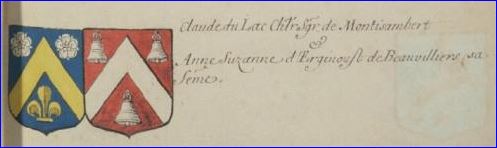 Claude du Lac Chlr Sgr de Montisambert
&
Anne Suzanne d'Erginoust de Beauvilliers sa
feme.